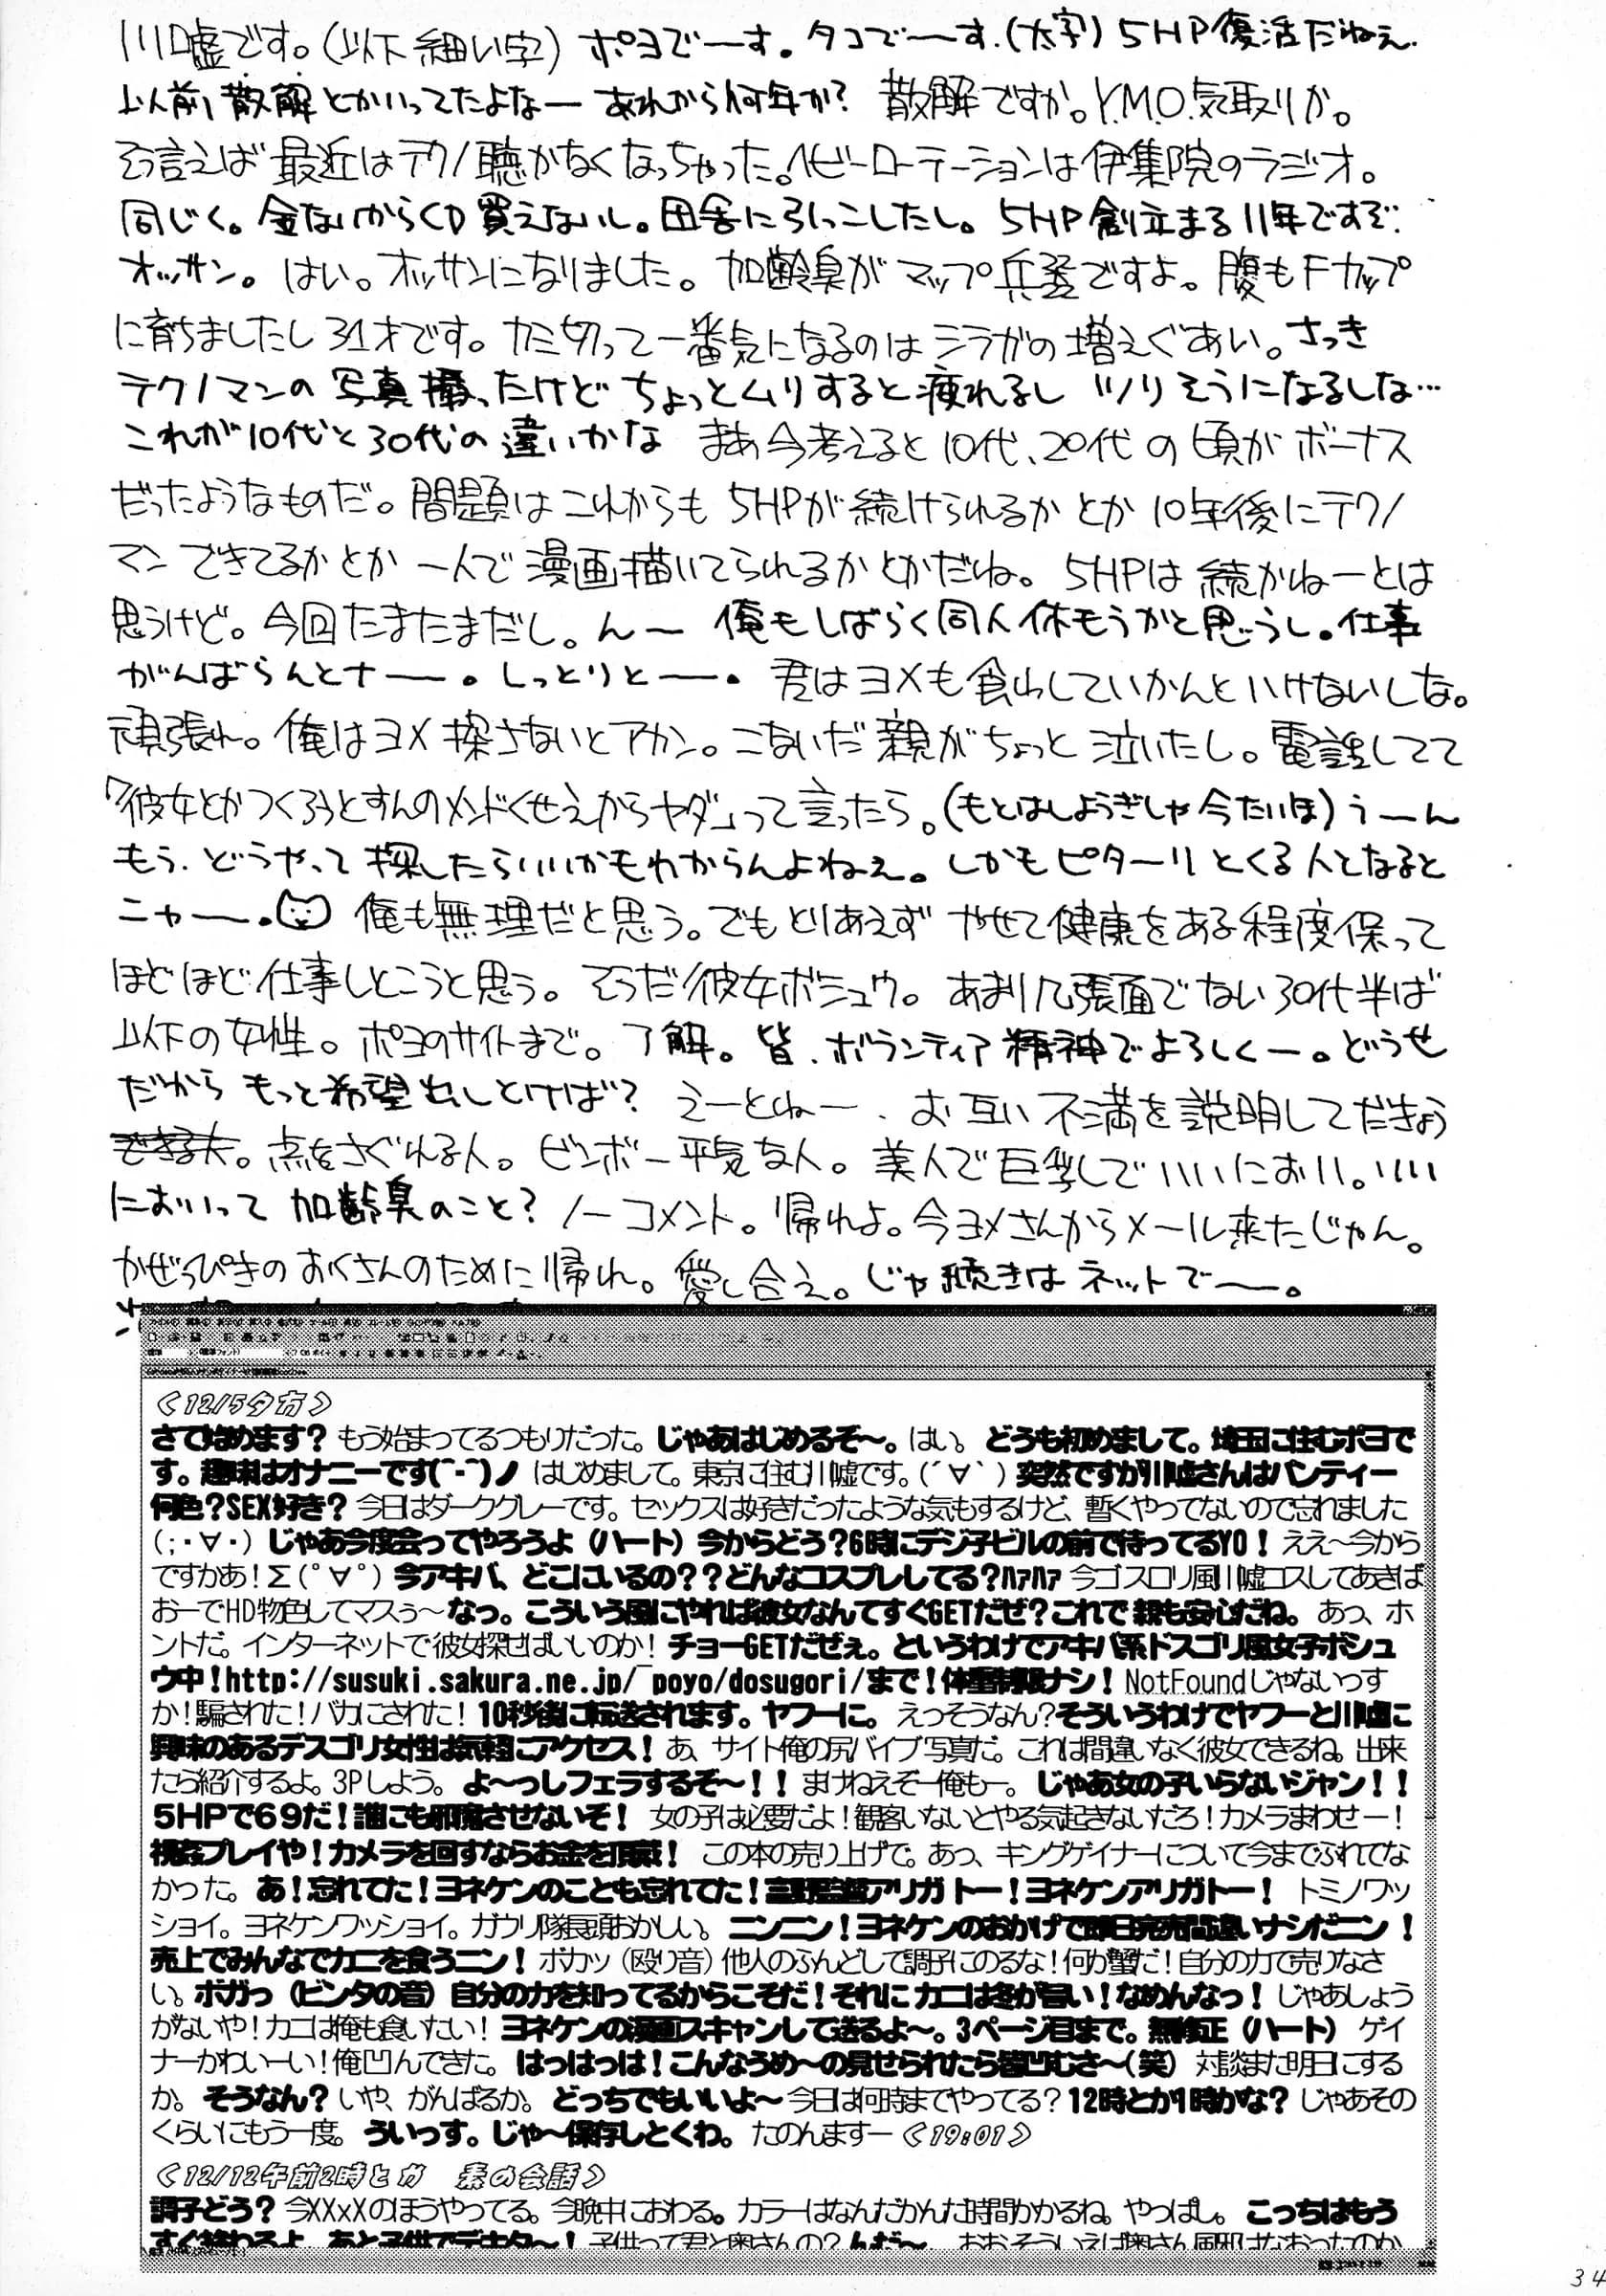 川嘘です。(以下細い字) ポヨでーす。タコで〜す.(太字) 5HP復活だねぇ.
以前散解とかいってたよなー あれから何年か? 散解ですか。Y.M.O.気取りか。
そう言えば最近はテクノ聴かなくなっちゃった。ヘビーローテーションは伊集院のラジオ。
同じく。金ないからCD買えないし。田舎に引っこしたし。5HP創立まる11年ですぞ.
オッサン。はい。オッサンになりました。加齢臭がマップ兵器ですよ。腹もFカップ
に育ちましたし31才です。カミ切って一番気になるのはシラガの増えぐあい。さっき
テクノマンの写真撮ったけどちょっとムリすると疲れるしツリそうになるしな…
これが10代と30代の違いかな まあ今考えると10代、20代の頃がボーナス
だったようなものだ。問題はこれからも5HPが続けられるかとか10年後にテクノ
マンできてるかとか一人で漫画描いてられるかとかだね。5HPは続かねーとは
思うけど。今回たまたまだし。んー 俺もしばらく同人休もうかと思うし。仕事
がんばらんとナー。しっとりとー。君はヨメも食わしていかんといけないしな。
頑張れ。俺はヨメ探さないとアカン。こないだ親がちょっと泣いたし。電話してて
「彼女とかつくろうとすんのメンドくせえからヤダ」って言ったら。(もとはしょうぎしゃ今たいほ) うーん
もう.どうやって探したらいいかもわからんよねぇ。しかもピターリとくる人となると
ニャー. 俺も無理だと思う。でもとりあえずやせて健康をある程度保って
ほどほど仕事しとこうと思う。そうだ彼女ボシュウ。あまり几張面でない30代半ば
以下の女性。ポヨのサイトまで。了解。皆.ボランティア精神でよろしくー。どうせ
だからもっと希望出しとけば? えーとねー、お互い不満を説明してだきょう
点をさぐれる人。ビンボー平気な人。美人で巨乳しでいいにおい。いい
においって加齢臭のこと? ノーコメント。帰れよ。今ヨメさんからメール来たじゃん。
かぜっぴきのおくさんのために帰れ。愛し合え。じゃ続きはネットでー。
<12/5夕方>
さて始めます? もう始まってるつもりだった。じゃあはじめるぞ〜。はい。どうも初めまして。埼玉に住むポヨで
す。趣味はオナニーです(^-^)ノ はじめまして。東京に住む川嘘です。(´∀`) 突然ですが川嘘さんはパンティー
何色?SEX好き? 今日はダークグレーです。セックスは好きだったような気もするけど、暫くやってないので忘れました
(;・∀・) じゃあ今度会ってやろうよ(ハート) 今からどう?6時にデジ子ビルの前で待ってるYO! ええ〜今から
ですかあ!Σ(゚∀゚) 今アキバ、どこにいるの??どんなコスプレしてる?ハァハァ 今ゴスロリ風川嘘コスしてあきば
おーでHD物色してマスぅ〜 なっ。こういう風にやれば彼女なんてすぐGETだぜ?これで親も安心だね。あっ、ホ
ントだ。インターネットで彼女探せばいいのか! チョーGETだぜぇ。というわけでアキバ系ドスゴリ風女子ボシュ
ウ中!http://susuki.sakura.ne.jp/~poyo/dosugori/まで!体重制限ナシ! NotFoundじゃないっす
か!騙された!バカにされた! 10秒後に転送されます。ヤフーに。えっそうなん?そういうわけでヤフーと川嘘に
興味のあるデスゴリ女性は気軽にアクセス! あ、サイト俺の尻バイブ写真だ。これは間違いなく彼女できるね。出来
たら紹介するよ。3Pしよう。よ〜っしフェラするぞ〜!! まけねえぞー俺もー。じゃあ女の子いらないジャン!!
5HPで69だ!誰にも邪魔させないぞ! 女の子は必要だよ!観客いないとやる気起きないだろ!カメラまわせー!
視姦プレイや!カメラを回すならお金を頂戴! この本の売り上げで。あっ、キングゲイナーについて今までふれてな
かった。あ!忘れてた!ヨネケンのことも忘れてた!富野監督アリガトー!ヨネケンアリガトー! トミノワッ
ショイ。ヨネケンワッショイ。ガウリ隊長頭おかしい。ニンニン!ヨネケンのおかげで即日完売間違いナシだニン!
売上でみんなでカニを食うニン! ボカッ(殴り音)他人のふんどしで調子にのるな!何が蟹だ!自分の力で売りなさ
い。ボガっ(ビンタの音)自分の力を知ってるからこそだ!それにカニは冬が旨い!なめんなっ! じゃあしょう
がないや!カニは俺も食いたい! ヨネケンの漫画スキャンして送るよ〜。3ページ目まで。無修正(ハート) ゲイ
ナーかわいーい!俺凹んできた。はっはっは!こんなうめ〜の見せられたら皆凹むさ〜(笑) 対談また明日にする
か。そうなん? いや、がんばるか。どっちでもいいよ〜 今日は何時までやってる? 12時とか1時かな? じゃあその
くらいにもう一度。ういっす。じゃ〜保存しとくわ。たのんますー <19:01>
<12/12午前2時とか 素の会話>
調子どう? 今XXxXのほうやってる。今晩中におわる。カラーはなんだかんだ時間かかるね。やっぱし。こっちはもう
すぐ終わるよ。あと子供でデキタ〜! 子供って君と奥さんの? んだ〜。おおそういえば奥さん風邪はなおったのか
34